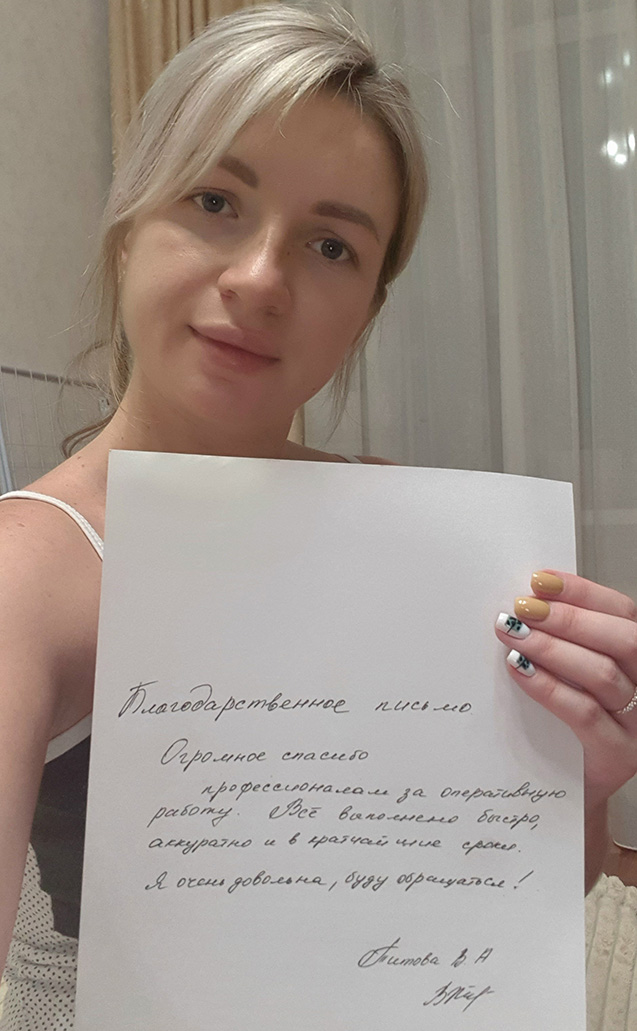 Благодарственное письмо
Огромное спасибо
профессионалам за оперативную
работу. Всё выполнено быстро,
аккуратно и в кратчайшие сроки.
Я очень довольна, буду обращаться!
Титова В А